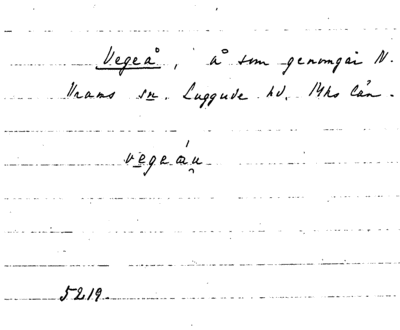 Vegeå, å som genomgår N.
Vrams sn. Luggude hd. Mhs län.
vegeáu̯
5219